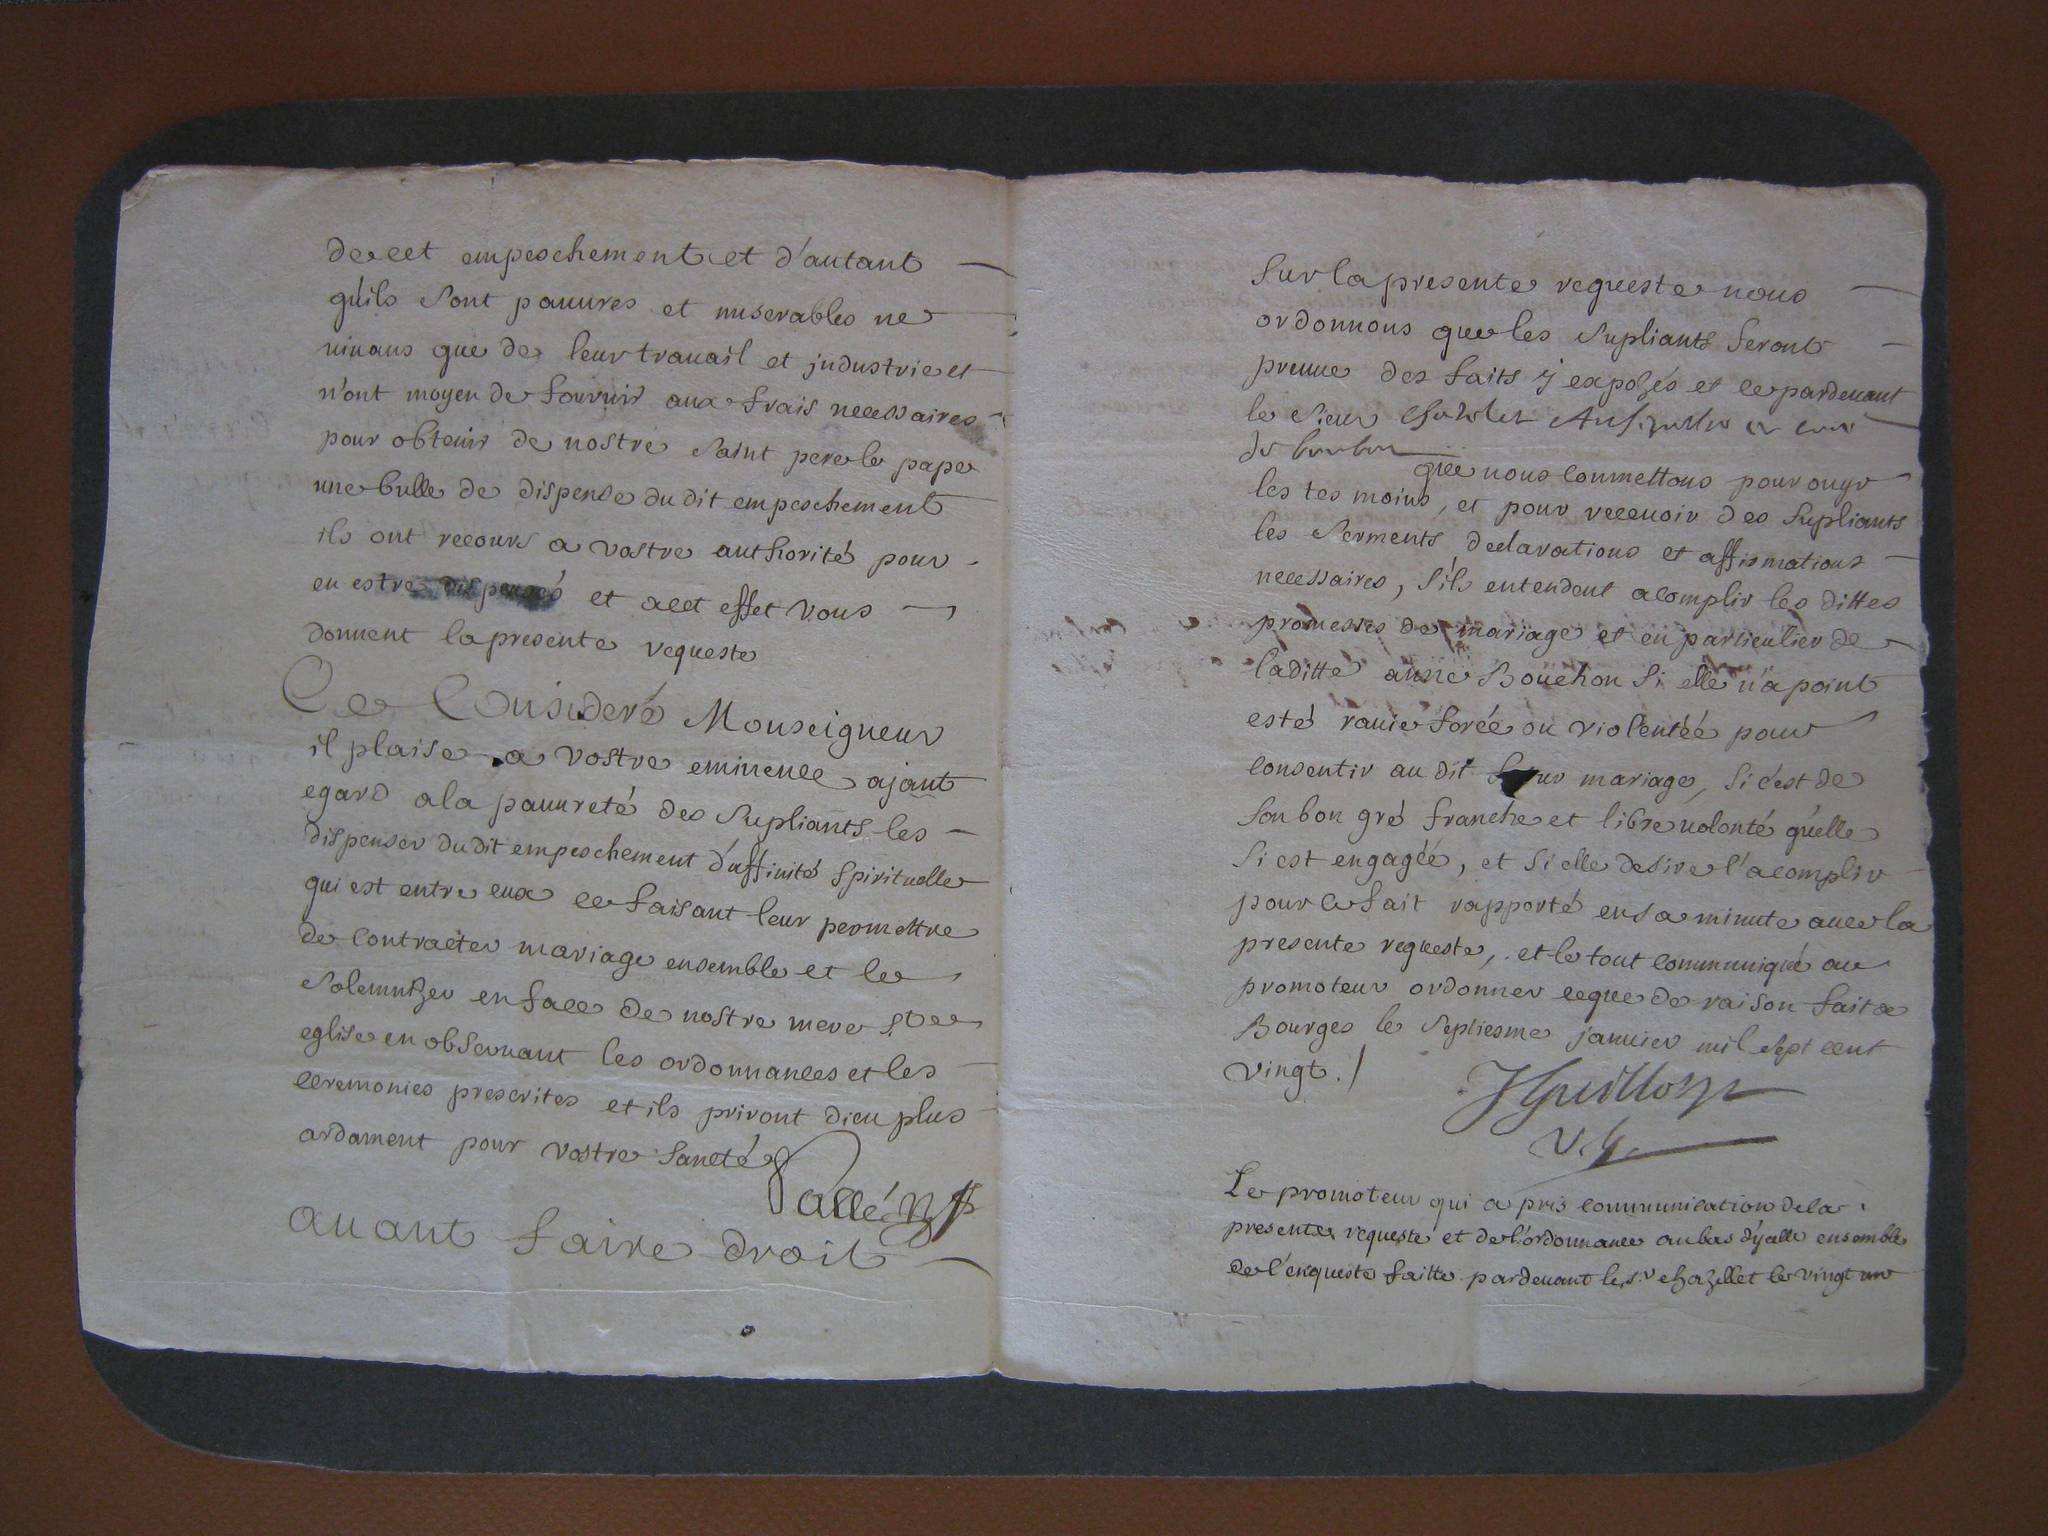 de cet empeschement et d'autant
qu'ils sont pauures et miserables ne
viuans que de leur trauail et jndustrie et
n'ont moyen de fournir aux frais necessaires
pour obtenir de nostre saint pere le pape
une bulle de dispense du dit empeschement
ils ont recours a vostre authorité pour
en estre dispensés et a cet effet vous
donnent la presente requeste
Ce Consideré Monseigneur
il plaise a vostre eminence ajant
egard a la pauureté des supliants les
dispenser du dit empeschement d'affinité spirituelle
qui est entre eux ce faisant leur permettre
de contracter mariage ensemble et le
solemnizer en face de nostre mere ste
eglise en obseruant les ordonnances et les
ceremonies prescrites et ils priront dieu plus
ardament pour vostre sancté
auant faire droit
Sur la presente requeste nous
ordonnons que les supliants feront
preuue des faits y exposés et ce pardeuant
le sieur
que nous commettons pour ouyr
les tesmoins, et pour receuoir des supliants
les serments declarations et affirmations
necessaires, s'ils entendent acomplir les dittes
promesses de mariage et en particulier de
laditte anne Bouchon si elle n'a point
esté rauie forcée ou violentéé pour
consentir au dit futur mariage, si c'est de
son bon gré franche et libre volonté qu'elle
si est engagéé, et si elle desire l'acomplir
pour ce fait rapporté en sa minute auec la
presente requeste, et le tout communiqué au
promoteur ordonner ce que de raison fait a
Bourges le septiesme januier mil sept cent
vingt ./
V. G.
Le promoteur qui a pris communication de la
presente requeste et de l'ordonnance au bas d'ycelle ensemble
de l'enqueste faitte pardeuant le sr chazellet le vingt un